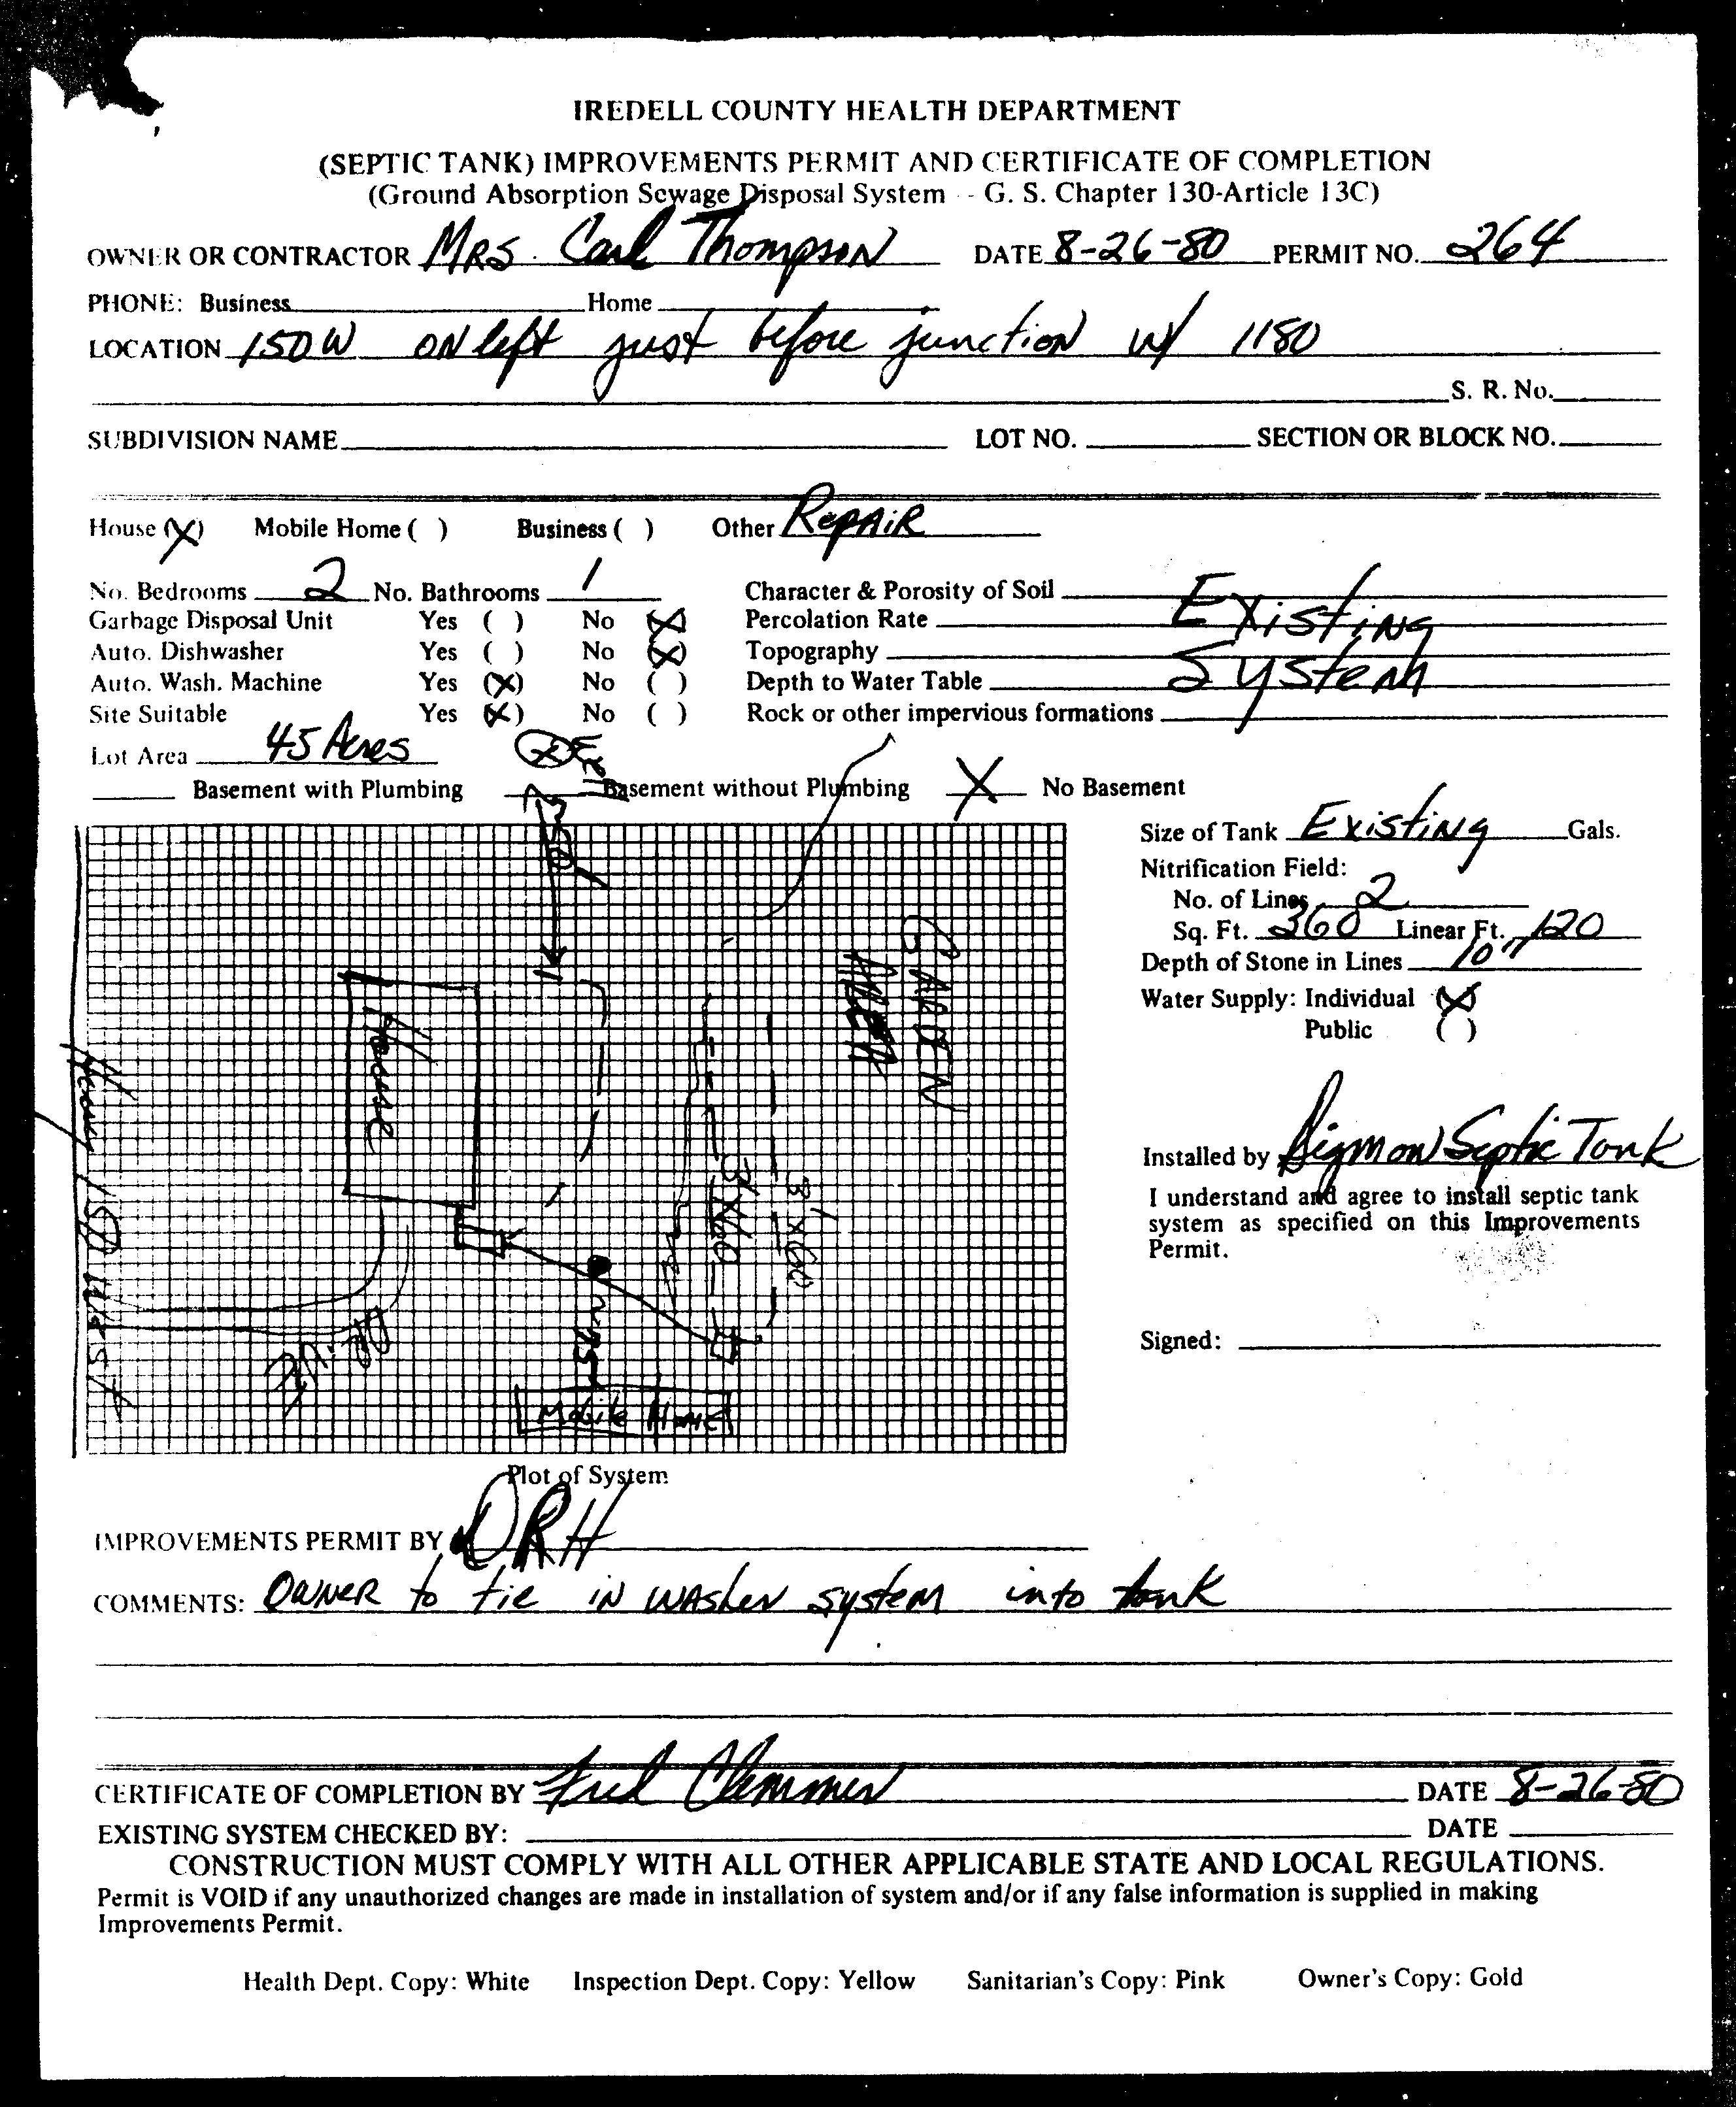 IREDELL COUNTY HEALTH DEPARTMENT
(SEPTIC TANK) IMPROVEMENTS PERMIT AND CERTIFICATE OF COMPLETION
(Ground Absorption Sewage Disposal System - G. S. Chapter 130-Article 13C)
OWNER OR CONTRACTOR MRS. Carl Thompson DATE 8-26-80 PERMIT NO. 264
PHONE: Business Home
LOCATION 150 W ON left just before junction w/ 1180
S. R. No.
SUBDIVISION NAME LOT NO. SECTION OR BLOCK NO.
House (X) Mobile Home ( ) Business ( ) Other Repair
No. Bedrooms 2 No. Bathrooms 1 Character & Porosity of Soil
Garbage Disposal Unit Yes ( ) No (X) Percolation Rate Existing
Auto. Dishwasher Yes ( ) No (X) Topography
Auto. Wash. Machine Yes (X) No ( ) Depth to Water Table System
Site Suitable Yes (X) No ( ) Rock or other impervious formations
Lot Area 45 Acres
Basement with Plumbing Basement without Plumbing X No Basement
Size of Tank Existing Gals.
Nitrification Field:
No. of Lines 2
Sq. Ft. 360 Linear Ft. 120
Depth of Stone in Lines 10"
Water Supply: Individual (X)
Public ( )
GARDEN
AREA
House
Hwy 150 West
3'x60
3'x60
Drive
Mobile Home
Installed by Sigmon Septic Tank
I understand and agree to install septic tank
system as specified on this Improvements
Permit.
Signed:
Plot of System
IMPROVEMENTS PERMIT BY DRH
COMMENTS: OWNER to tie in washer system into tank
CERTIFICATE OF COMPLETION BY Fred Clemmer DATE 8-26-80
EXISTING SYSTEM CHECKED BY: DATE
CONSTRUCTION MUST COMPLY WITH ALL OTHER APPLICABLE STATE AND LOCAL REGULATIONS.
Permit is VOID if any unauthorized changes are made in installation of system and/or if any false information is supplied in making
Improvements Permit.
Health Dept. Copy: White Inspection Dept. Copy: Yellow Sanitarian's Copy: Pink Owner's Copy: Gold